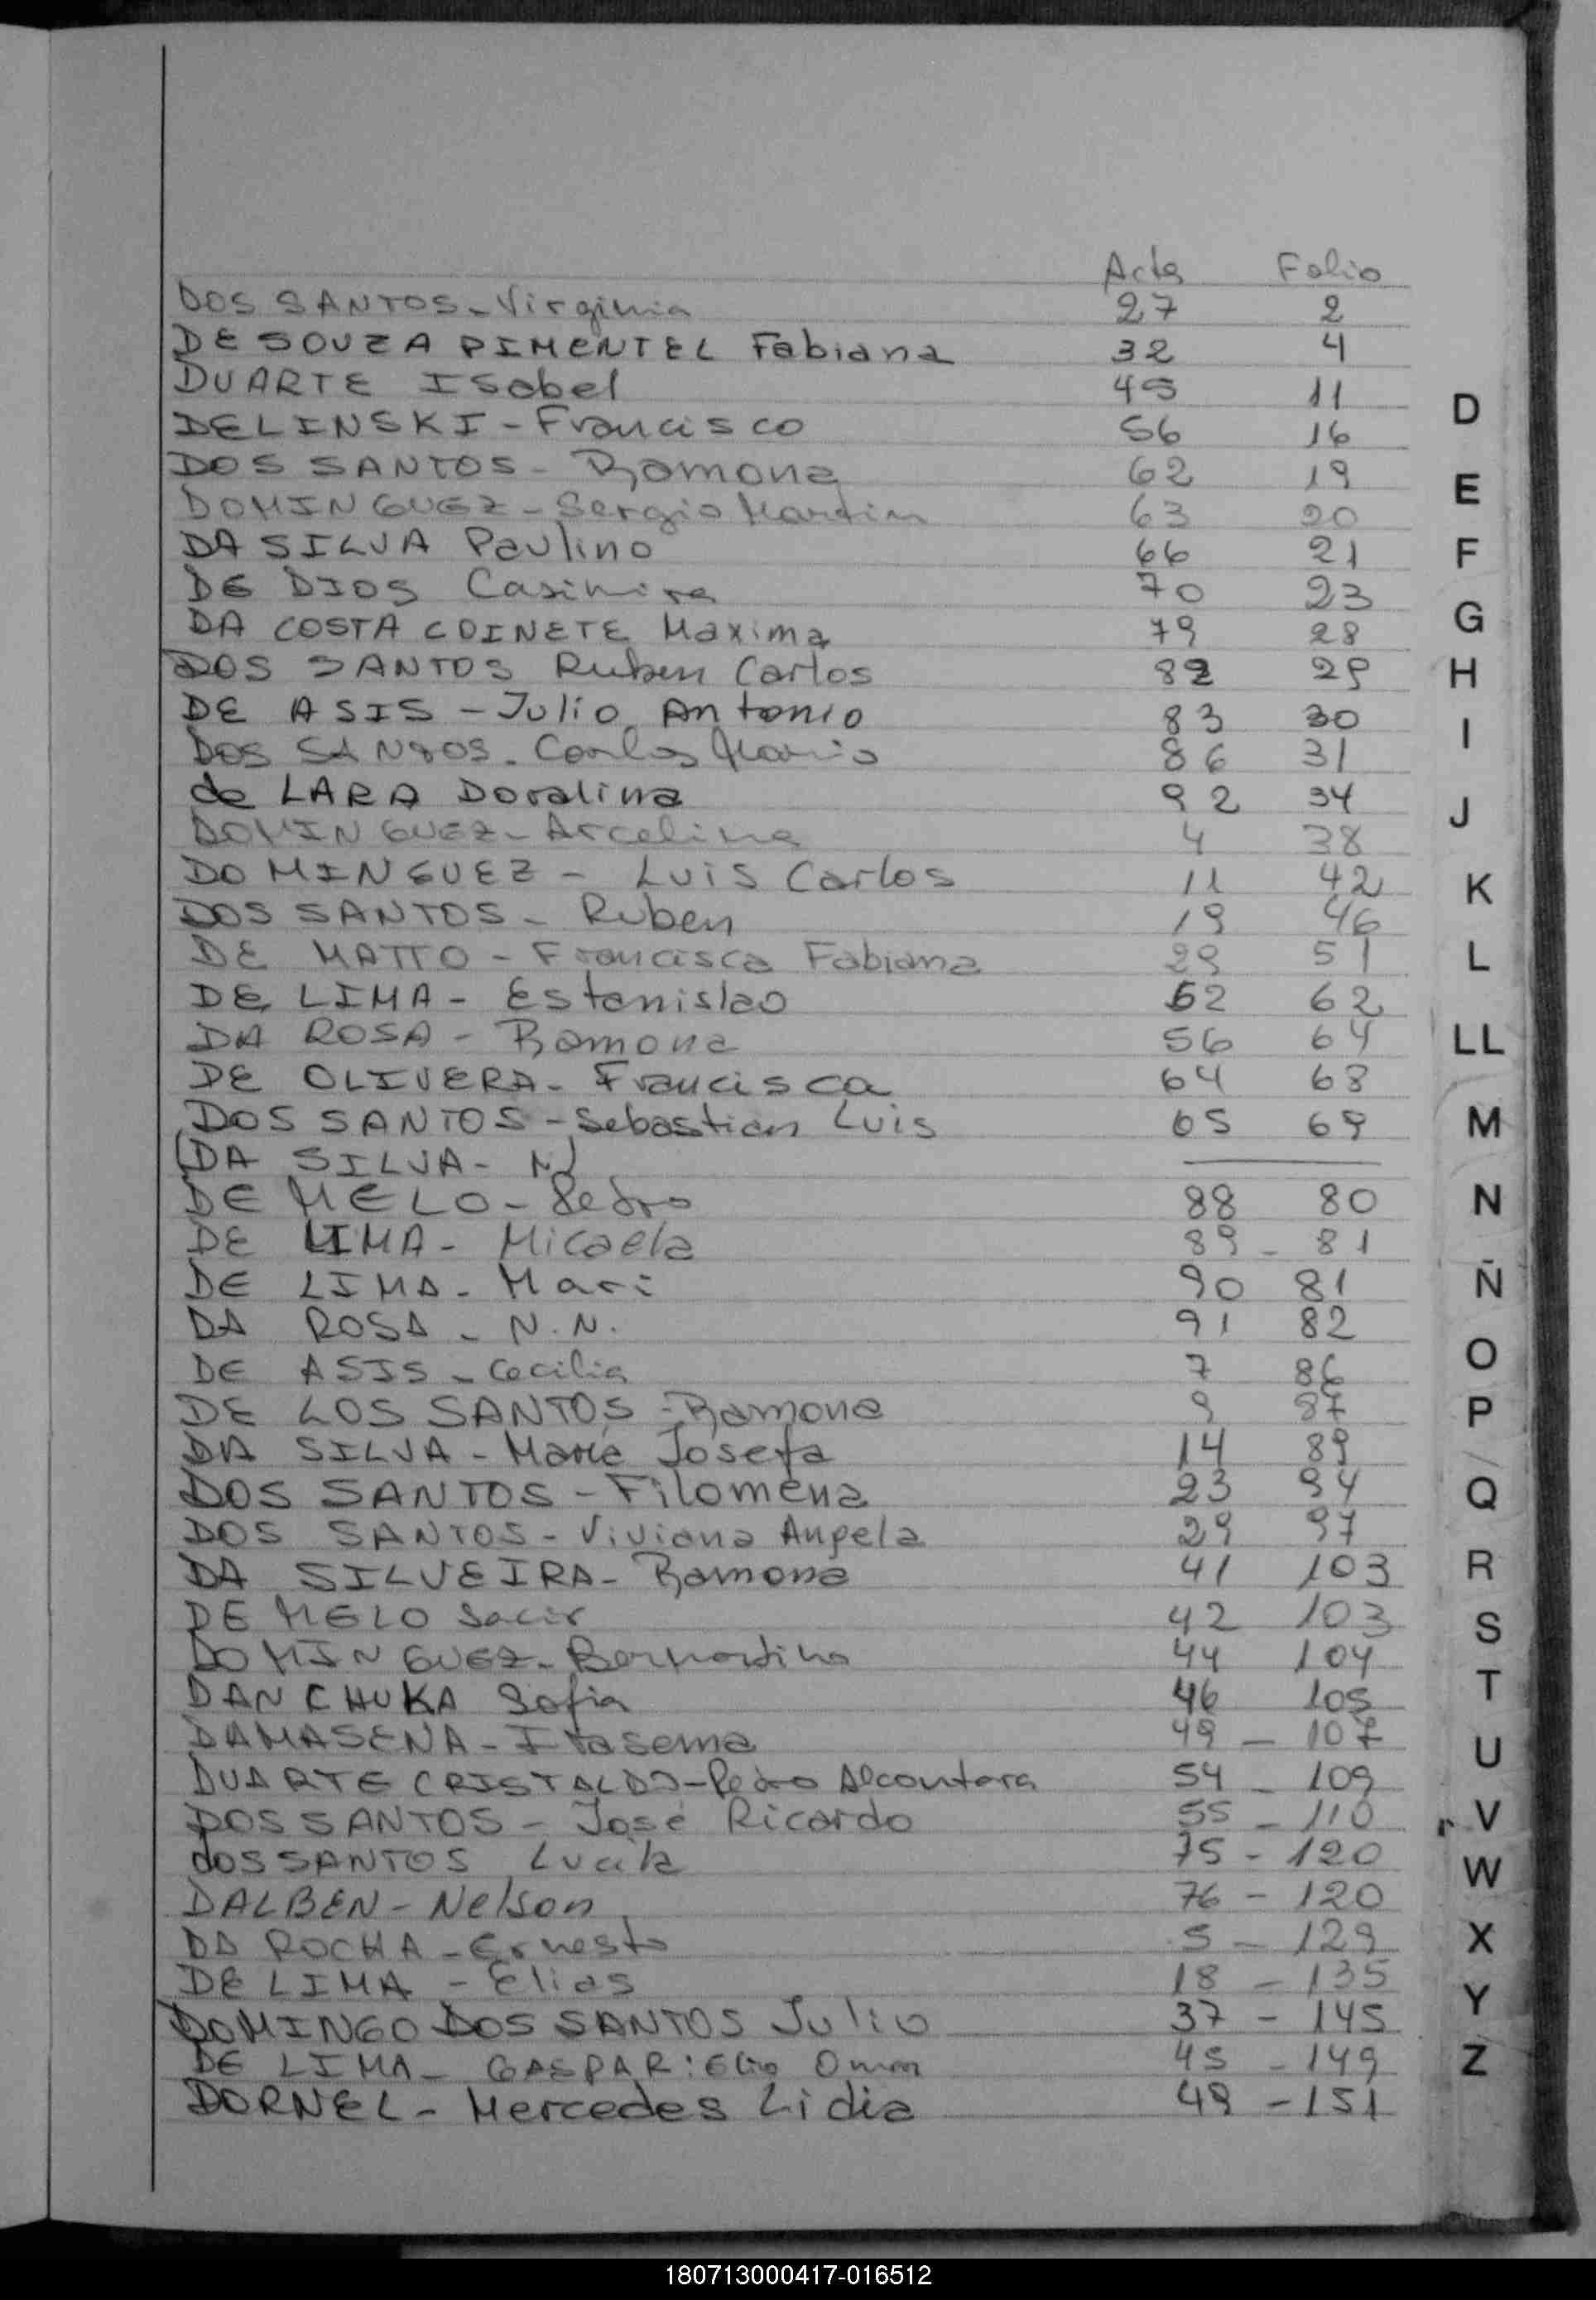 Acta Folio
DOS SANTOS - Virginia 27 2
DE SOUZA PIMENTEL Fabiana 32 4
DUARTE ISabel 45 11
DELINSKI - Francisco 56 16
DOS SANTOS - Ramona 62 19
DOMINGUEZ - Sergio Martin 63 20
DA SILVA Paulino 66 21
DE DIOS Casimira 70 23
DA COSTA COINETE Maxima 79 28
DOS SANTOS Ruben Carlos 82 29
DE ASIS - Julio Antonio 83 30
DOS SANTOS - Carlos Mario 86 31
de LARA Doralina 92 34
DOMINGUEZ - Arcelina 4 38
DOMINGUEZ - Luis Carlos 11 42
DOS SANTOS - Ruben 19 46
DE MATTO - Francisca Fabiana 29 51
DE LIMA - Estanislao 62
DA ROSA - Ramona 56 64
DE OLIVERA - Francisca 64 68
DOS SANTOS - Sebastian Luis 65 69
DA SILVA - N
DE MELO - Pedro 88 80
DE LIMA - Micaela 89 - 81
DE LIMA - Mari 90 81
DA ROSA - N.N. 91 82
DE ASIS - Cecilia 7 86
DE LOS SANTOS - Ramona 9 87
DA SILVA - María Josefa 14 89
DOS SANTOS - Filomena 23 94
DOS SANTOS - Viviana Angela 29 97
DA SILVEIRA - Ramona 41 103
DE MELO 42 103
DOMINGUEZ - Bernardina 44 104
DANCHUKA Sofia 46 105
DAMASENA - Itasema 49 - 107
DUARTE CRISTALDO - Pedro Alcantara 54 - 109
DOS SANTOS - José Ricardo 55 - 110
dos SANTOS Lucila 75 - 120
DALBEN - Nelson 76 - 120
DA ROCHA - Ernesto 5 - 129
DE LIMA - Elias 18 - 135
DOMINGO DOS SANTOS Julio 37 - 145
DE LIMA - GASPAR: Elio Omar 45 - 149
DORNEL - Mercedes Lidia 49 - 151
D
E
F
G
H
I
J
K
L
LL
M
N
Ñ
O
P
Q
R
S
T
U
V
W
X
Y
Z
180713000417-016512